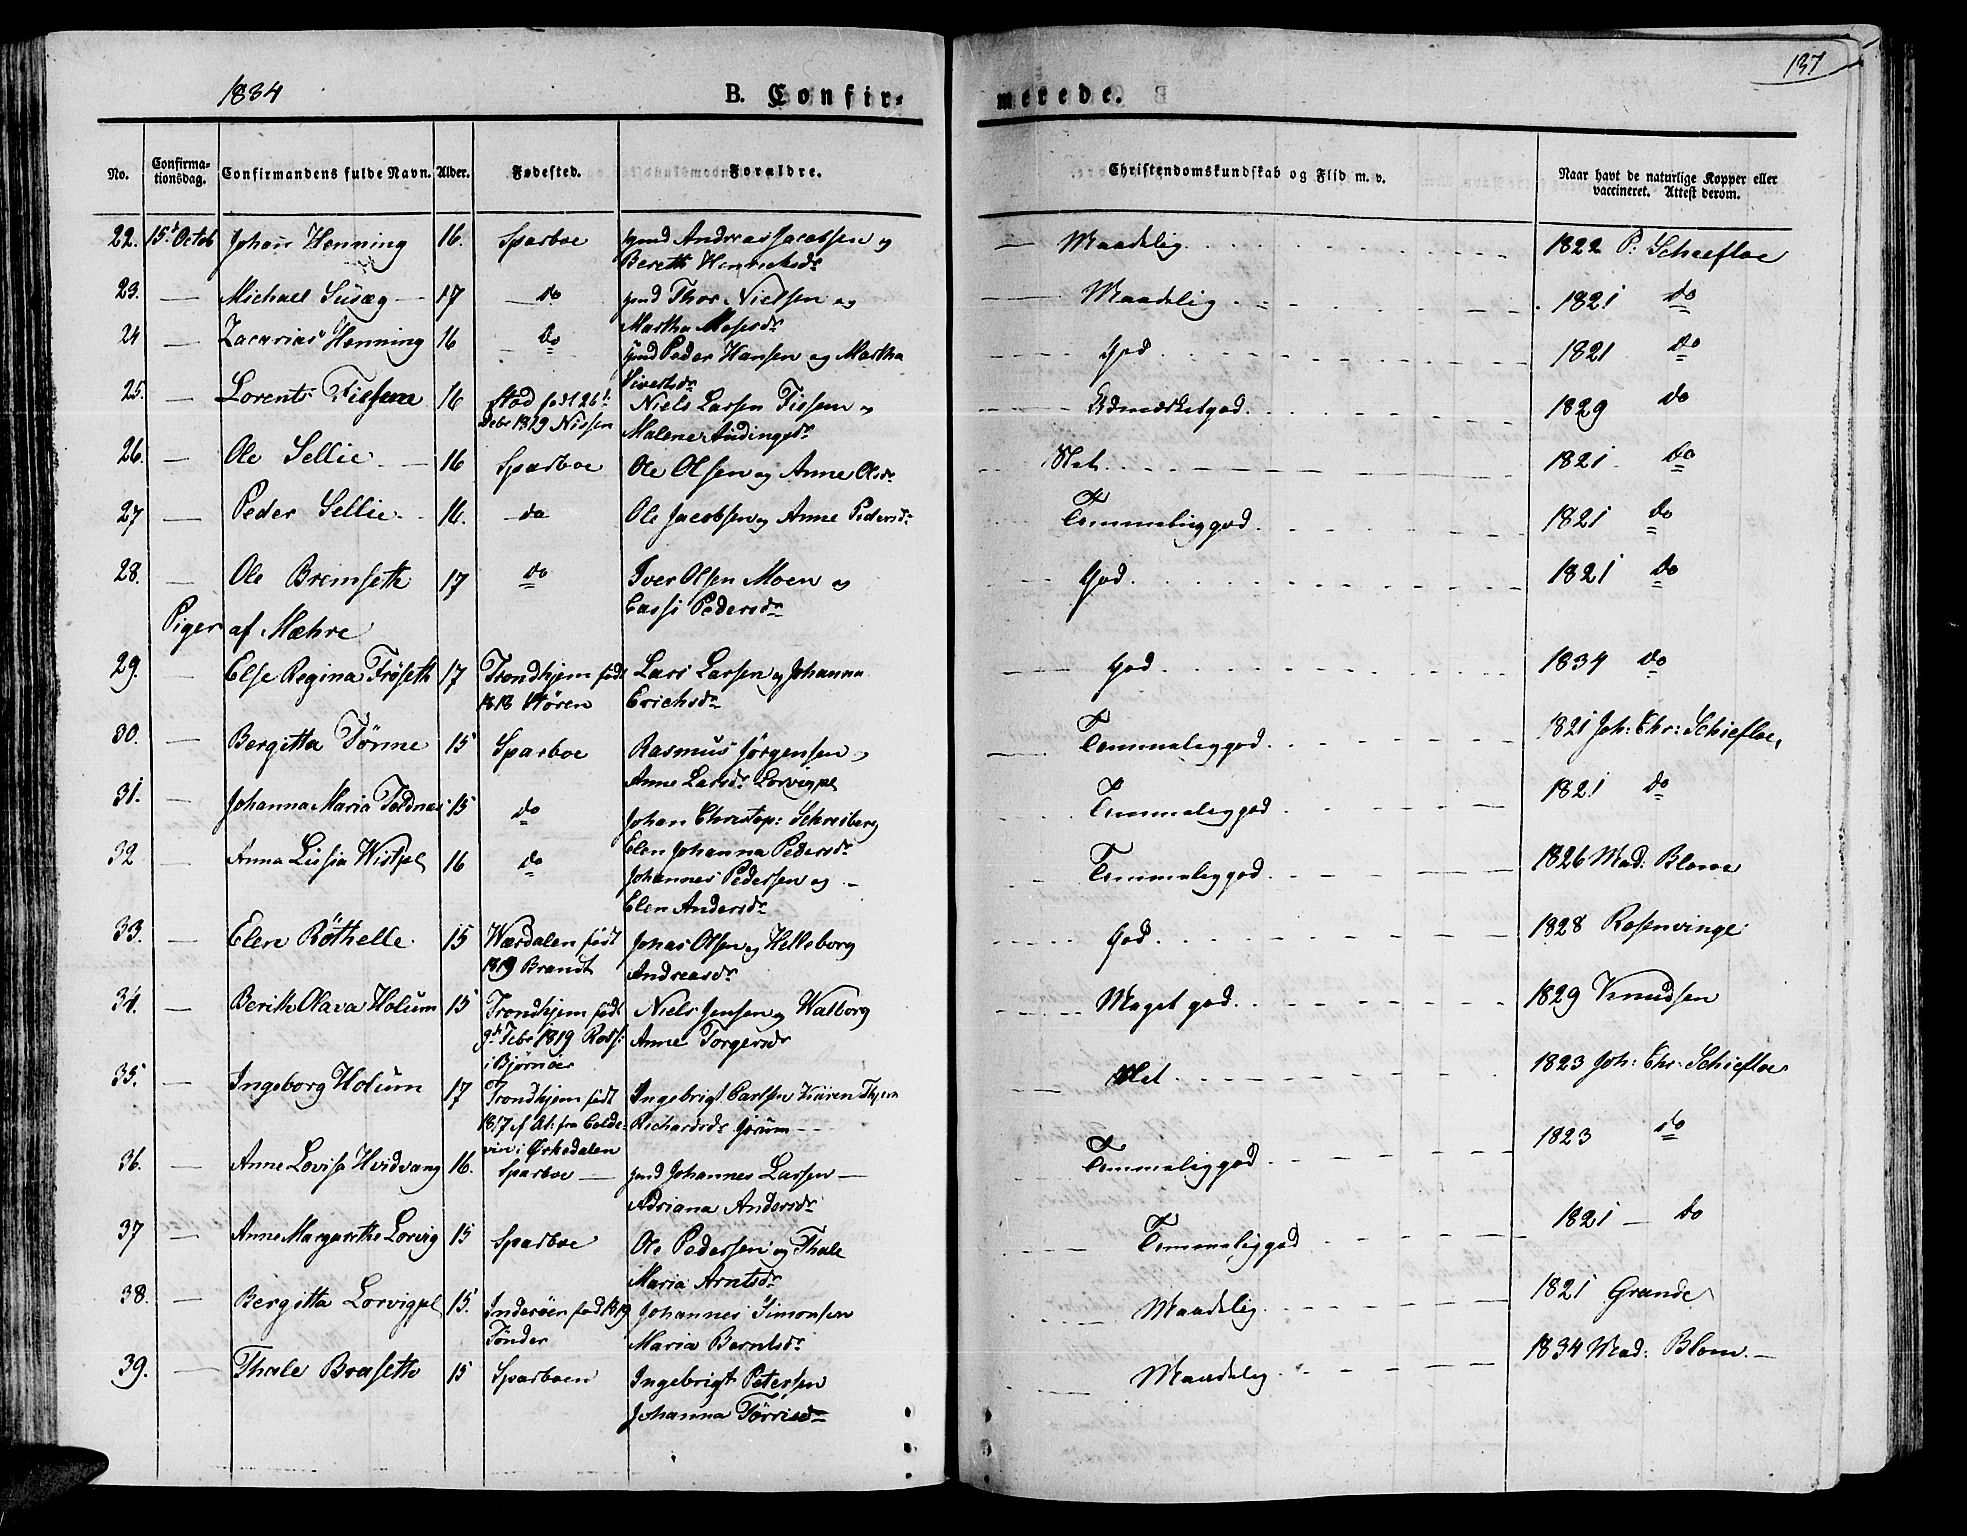 1834 B. Confir- merede. 137
No. Confirmationsdag. Confirmandens fulde Navn. Alder. Fødested. Forældre. Christendomskundskab og Flid m. v. Naar havt de naturlige Kopper eller vaccineret. Attest derom.
22. 15de Octob Johan Henning 16. Sparboe Andreas Jacobsen og Bereth Henrichsdr Maadelig 1822 P. Schiefloe
23. — Michael Susæg 17 do Thor Nielsen og Martha Mosesdr Maadelig 1821 do
24 — Zacarias Henning 16 do Peder Hansen og Martha Sivertsdr God 1821 do
25. — Lorents Fiesem 16 Stod født 26t Debr 1819 Nissen Niels Larsen Fiesem og Malene Audingsdr Udmærketgod 1829 do
26. — Ole Sellie 16 Sparboe Ole Olsen og Anne Olsdr Slet 1821 do
27 — Peder Sellie 16. do Ole Jacobsen og Anne Pedersdr Temmeliggod 1821 do
28. — Ole Bremseth 17 do Iver Olsen Moen og Cassi Pedersdr God 1821 do
Piger af Mæhre
29. — Else Regina Frøseth 17 Trondhjem født 1818 Støren Lars Larsen og Johanna Erichsdr God 1834 do
30. — Bergitta Tønne 15 Sparboe Rasmus Jørgensen Anne Larsdr Lorvigpl Temmeliggod 1821 Joh: Chr: Schiefloe
31. — Johanna Maria Toldnæs 15 do Johan Christop: Schreiberg Elen Johanna Pedersdr Temmeliggod 1821 do
32 — Anna Lusia Wistpl 16 do Johannes Pedersen og Elen Andersdr Temmeliggod 1826 Mad: Blom
33. — Elen Røthelle 15 Værdalen født 1819 Brandt Jonas Olsen og Helleborg Andreasdr God 1828 Rosenvinge
34. — Berith Olava Holum 15 Trondhjem født 9de Febr 1819 i Bjørnør Niels Jensen og Walborg Anne Torgersdr Meget god 1829 Knudsen
35. — Ingeborg Holum 17 Trondhjem født 1817 Orkedalen Ingebrigt Carlsen Richardsdr Slet 1823 Joh: Chr: Schiefloe
36. — Anne Lovise Hvidvang 16. Sparboe Johannes Larsen Adriana Andersdr Temmeliggod 1823 do
37 — Anne Margarethe Lorvig 15 Sparboe Ole Pedersen og Thale Maria Arntsdr Temmeliggod 1821 do
38. — Bergitta Lorvigpl 15. Inderøen fød 1819 Tønder Johannes Simonsen Maria Berntsdr Maadelig 1821 Grande
39. — Thale Braseth 15 Sparboen Ingebrigt Petersen Johanna Tørrisdr Maadelig 1834 Mad: Blom.